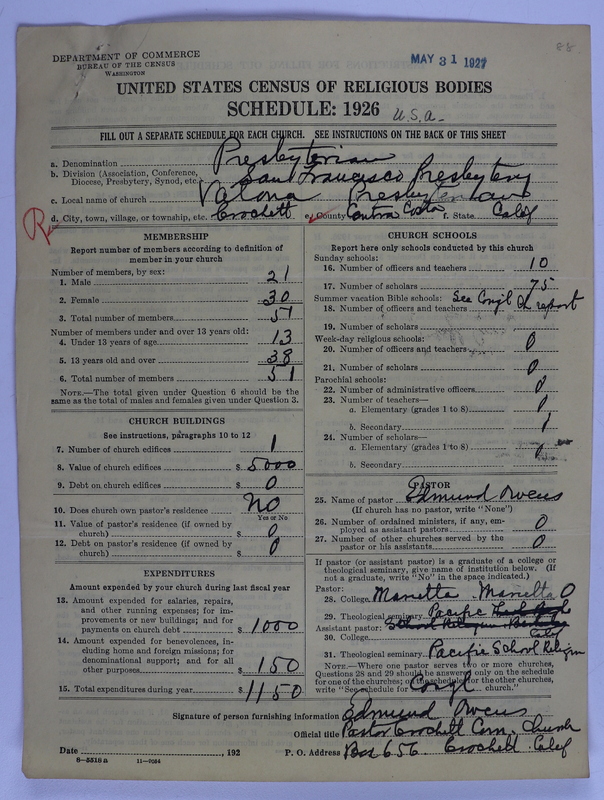 88
DEPARTMENT OF COMMERCE
BUREAU OF THE CENSUS
WASHINGTON
MAY 31 1927
UNITED STATES CENSUS OF RELIGIOUS BODIES
SCHEDULE: 1926 U.S.A.
FILL OUT A SEPARATE SCHEDULE FOR EACH CHURCH. SEE INSTRUCTIONS ON THE BACK OF THIS SHEET
a. Denomination Presbyterian
b. Division (Association, Conference, Diocese, Presbytery, Synod, etc. San Francisco Presbytery
c. Local name of church Valona Presbyterian
d. City, town, village, or township, etc. Crockett e. County Contra Costa f. State Calif
MEMBERSHIP
Report number of members according to definition of member in your church
Number of members, by sex:
1. Male 21
2. Female 30
3. Total number of members 51
Number of members under and over 13 years old:
4. Under 13 years of age 13
5. 13 years old and over 38
6. Total number of members 51
NOTE.—The total given under Question 6 should be the same as the total of males and females given under Question 3.
CHURCH BUILDINGS
See instructions, paragraphs 10 to 12
7. Number of church edifices 1
8. Value of church edifices $ 5000
9. Debt on church edifices $ 0
10. Does church own pastor's residence No
Yes or No
11. Value of pastor's residence (if owned by church) $ 0
12. Debt on pastor's residence (if owned by church) $ 0
EXPENDITURES
Amount expended by your church during last fiscal year
13. Amount expended for salaries, repairs, and other running expenses; for improvements or new buildings; and for payments on church debt $ 1000
14. Amount expended for benevolences, including home and foreign missions; for denominational support; and for all other purposes $ 150
15. Total expenditures during year $ 1150
CHURCH SCHOOLS
Report here only schools conducted by this church
Sunday schools:
16. Number of officers and teachers 10
17. Number of scholars 75
Summer vacation Bible schools: See Congl Ch report
18. Number of officers and teachers
19. Number of scholars
Week-day religious schools: 0
20. Number of officers and teachers
21. Number of scholars 0
Parochial schools:
22. Number of administrative officers 0
23. Number of teachers—
a. Elementary (grades 1 to 8) 0
b. Secondary
24. Number of scholars—
a. Elementary (grades 1 to 8) 0
b. Secondary
PASTOR
25. Name of pastor Edmund Owens
(If church has no pastor, write "None")
26. Number of ordained ministers, if any, employed as assistant pastors 0
27. Number of other churches served by the pastor or his assistants 0
If pastor (or assistant pastor) is a graduate of a college or theological seminary, give name of institution below. (If not a graduate, write "No" in the space indicated.)
Pastor:
28. College Marietta Marietta O
29. Theological seminary Pacific
Assistant pastor:
30. College Calif
31. Theological seminary Pacific School Religion
NOTE.—Where one pastor serves two or more churches, Questions 28 and 29 should be answered only on the schedule for one of the churches; on the schedules for the other churches, write "See schedule for Congl church."
Signature of person furnishing information Edmund Owens
Official title Pastor Crockett Com. Church
Date , 192 P. O. Address Box 656. Crockett Calif
8—5518 a 11—9054